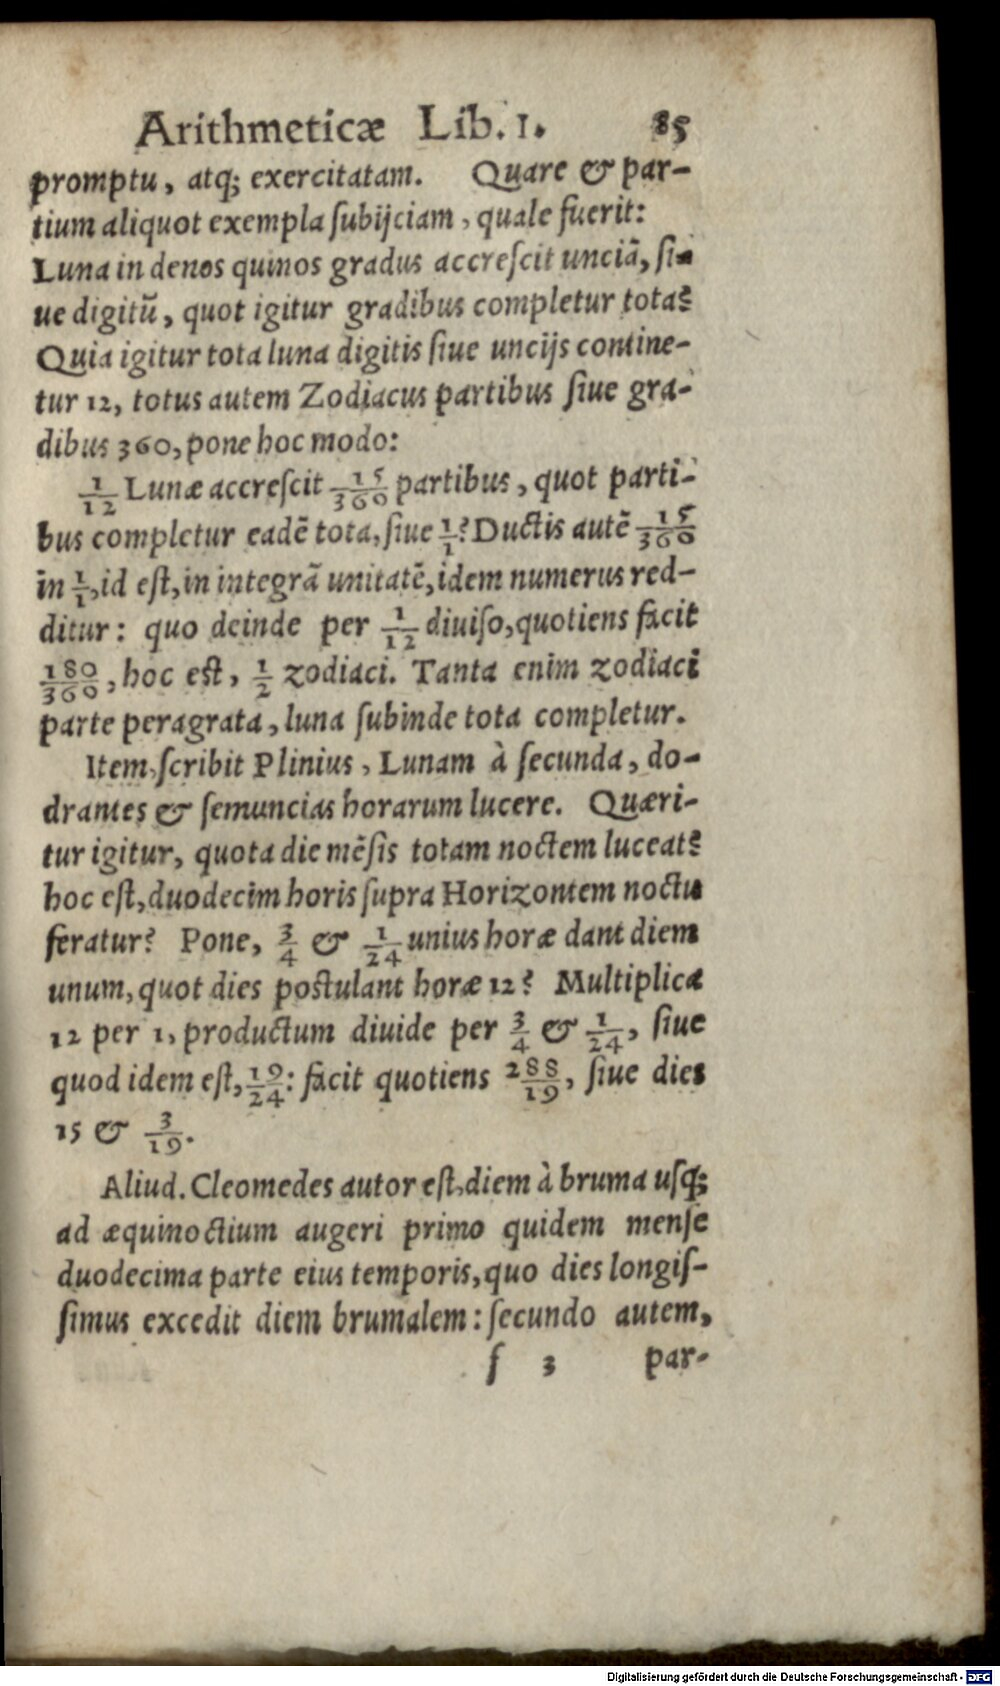 Arithmeticæ Lib. 1. 85
promptu, atq; exercitatam. Quare & par-
tium aliquot exempla ſubijciam, quale fuerit:
Luna in denos quinos gradus accreſcit unciā, ſi-
ue digitū, quot igitur gradibus completur tota?
Quia igitur tota luna digitis ſiue uncijs contine-
tur 12, totus autem Zodiacus partibus ſiue gra-
dibus 360, pone hoc modo:
1/12 Lunæ accreſcit 15/360 partibus, quot parti-
bus completur eadē tota, ſiue 1/1? Ductis autē 15/360
in 1/1, id eſt, in integrā unitatē, idem numerus red-
ditur: quo deinde per 1/12 diuiſo, quotiens facit
180/360, hoc eſt, 1/2 zodiaci. Tanta enim zodiaci
parte peragrata, luna ſubinde tota completur.
Item, ſcribit Plinius, Lunam à ſecunda, do-
drantes & ſemuncias horarum lucere. Quæri-
tur igitur, quota die mēſis totam noctem luceat?
hoc eſt, duodecim horis ſupra Horizontem noctu
feratur? Pone, 3/4 & 1/24 unius horæ dant diem
unum, quot dies poſtulant horæ 12? Multiplica
12 per 1, productum diuide per 3/4 & 1/24, ſiue
quod idem eſt, 19/24: facit quotiens 288/19, ſiue dies
15 & 3/19.
Aliud. Cleomedes autor eſt, diem à bruma uſq;
ad æquinoctium augeri primo quidem menſe
duodecima parte eius temporis, quo dies longiſ-
ſimus excedit diem brumalem: ſecundo autem,
f 3 par-
Digitalisierung gefördert durch die Deutsche Forschungsgemeinschaft - DFG